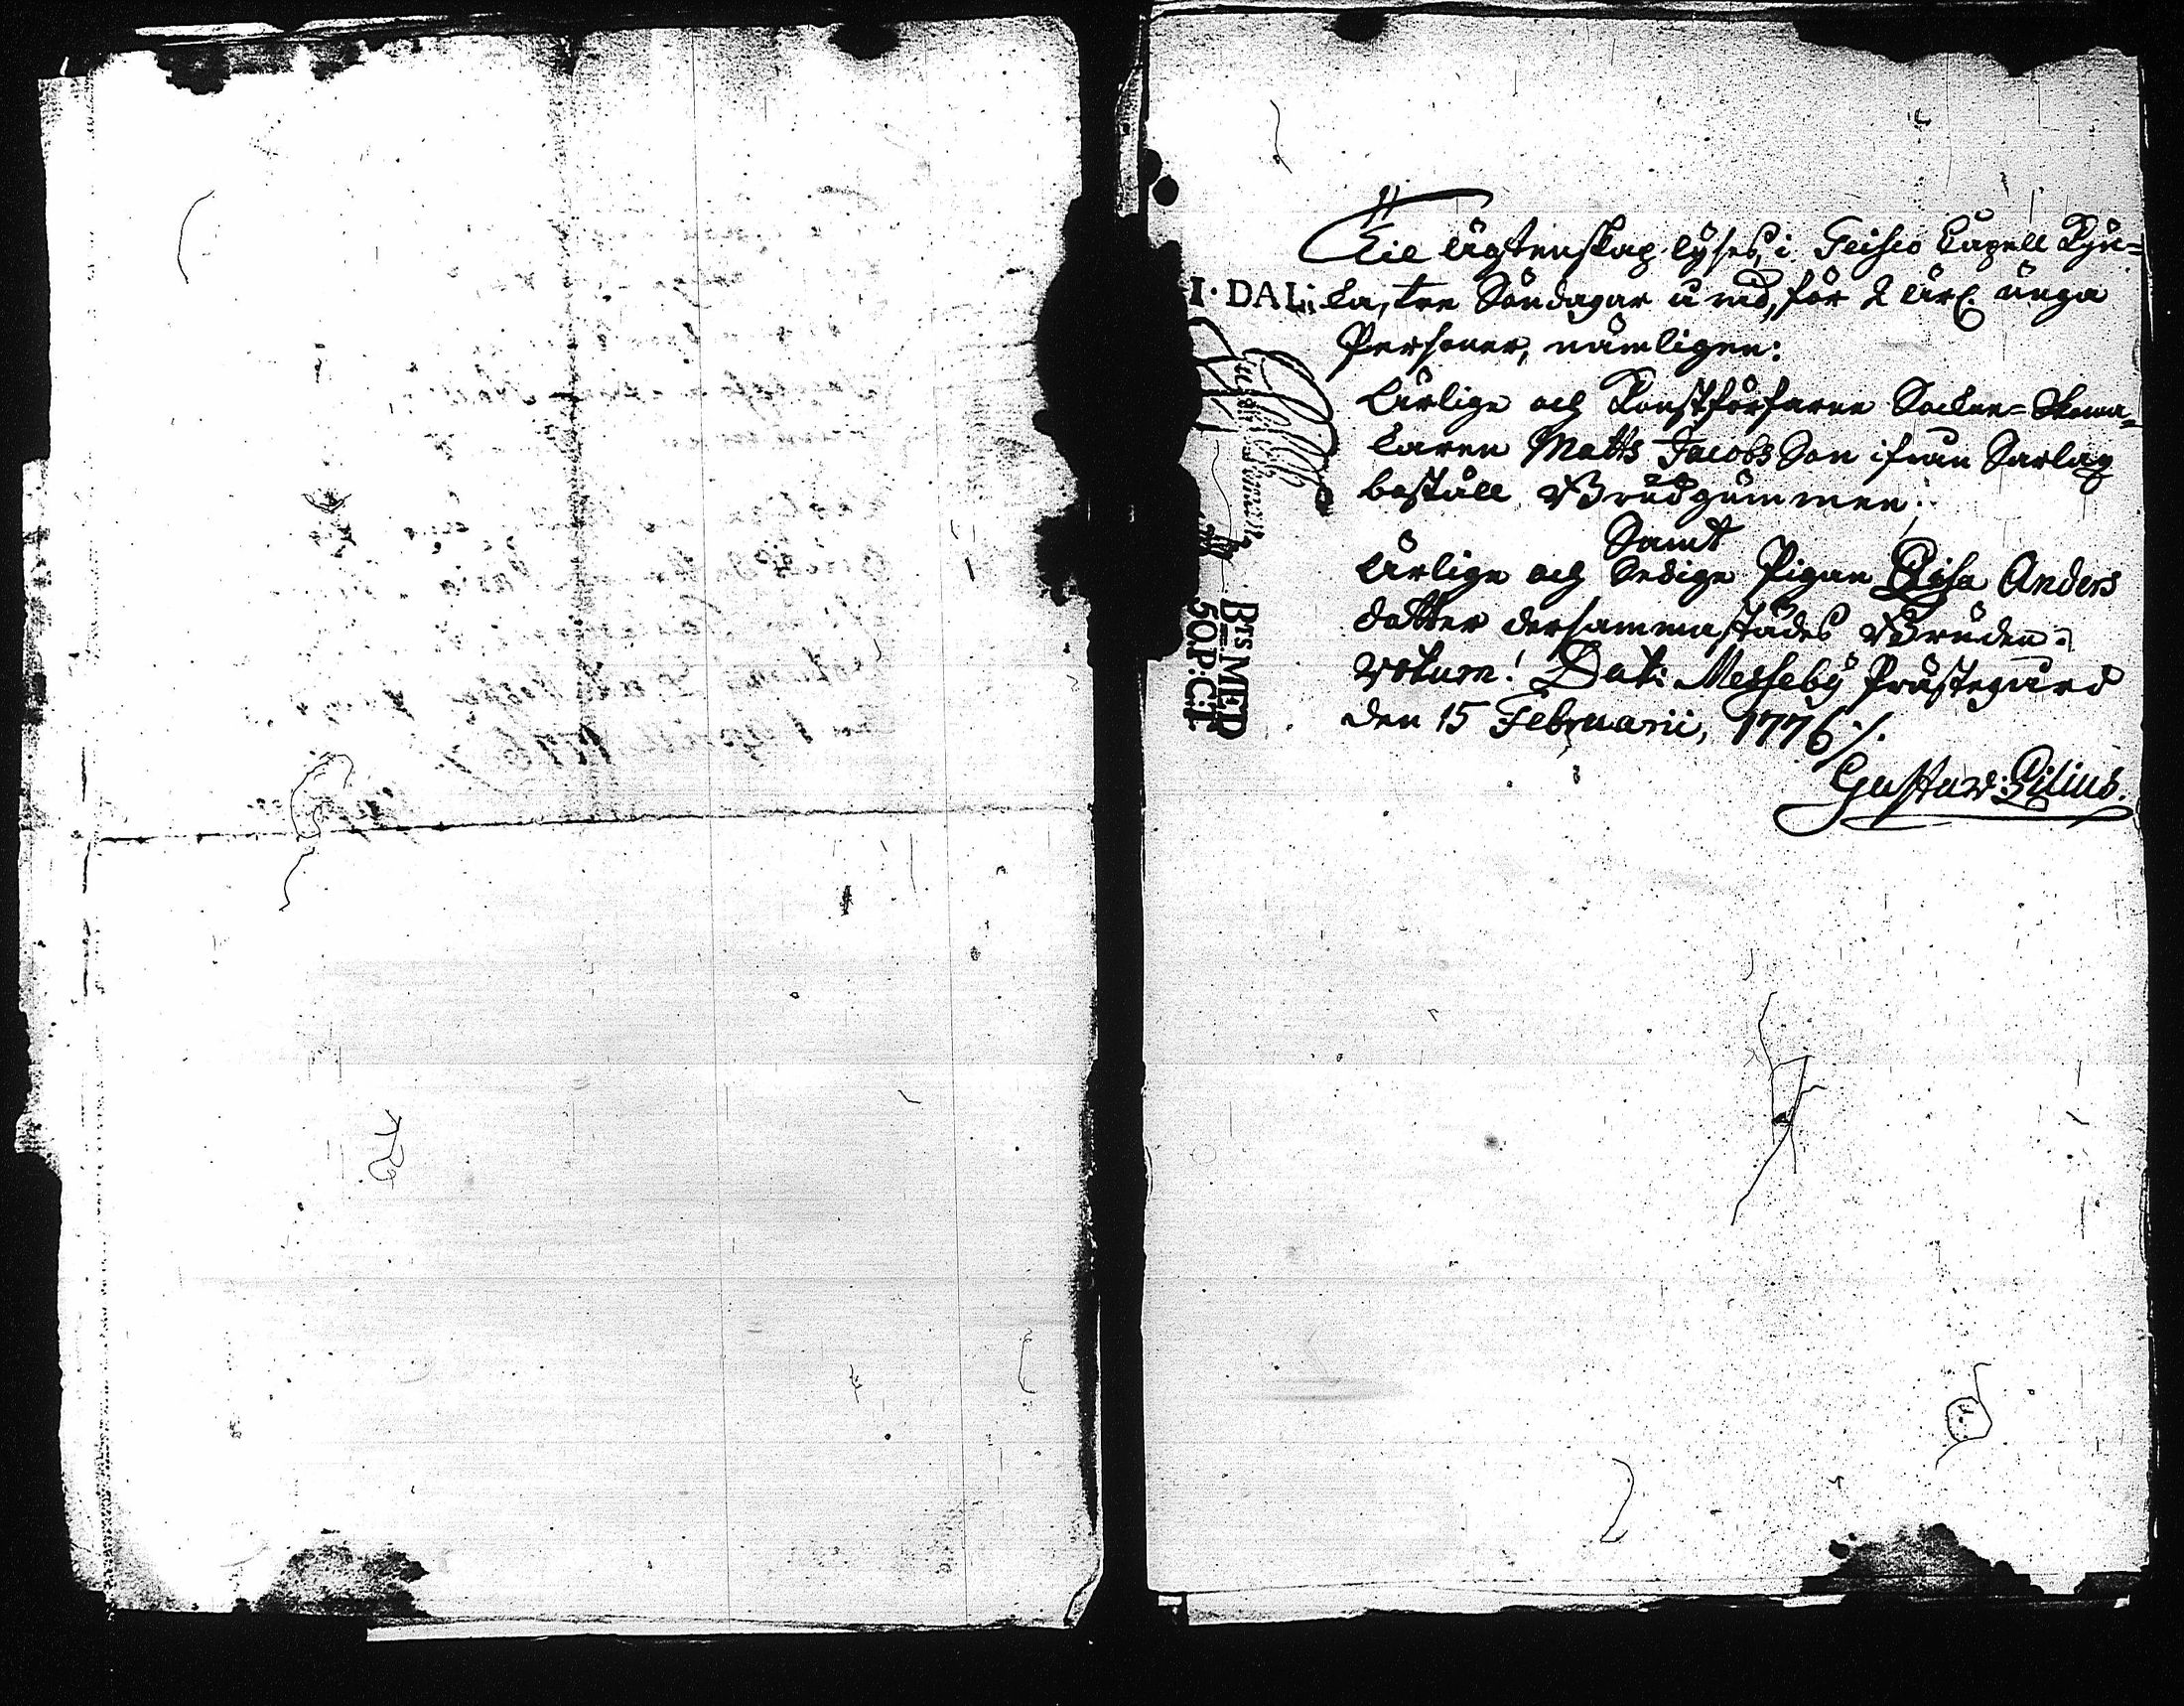 Til ägtenskap lyses, i Teisko Capell Kyr-
I·DALi
ka, tre Söndagar å rad, för 2 ärl. unga
Personer, nämligen:
Ärlige och Konstförfarne Sockne-Skoma-
karen Matts Jacobs Son ifrån Sarlax
boställ Brudgummen:
Samt
Ärlige och Sedige Pigan Lisa Anders
dotter dersammastädes Bruden.
Votum! Dat: Messeby Prästegård
den 15 Februarii, 1776 ./.
Gustav: Gilius.
BTS MED
50.P:CT